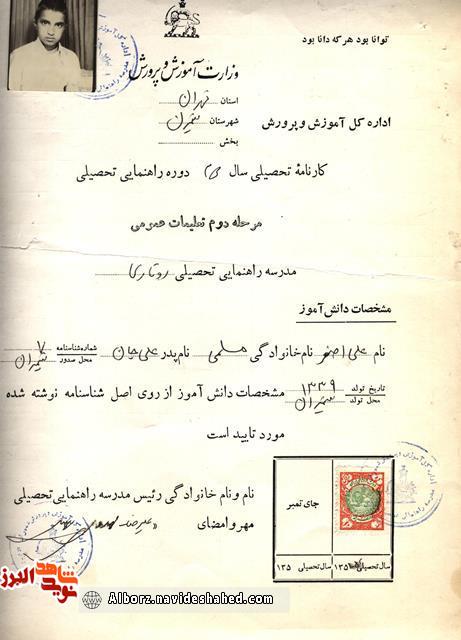 توانا بود هر که دانا بود
وزارت آموزش و پرورش
استان تهران
اداره کل آموزش و پرورش
شهرستان شمیران
بخش
کارنامهٔ تحصیلی سال دوره راهنمایی تحصیلی
مرحله دوم تعلیمات عمومی
مدرسه راهنمایی تحصیلی
مشخصات دانش آموز
نام علی اصغر نام خانوادگی نام پدر علی جان شماره شناسنامه ۷
محل صدور شمیران
تاریخ تولد ۱۳۳۹ مشخصات دانش آموز از روی اصل شناسنامه نوشته شده
محل تولد شمیران
مورد تایید است
نام و نام خانوادگی رئیس مدرسه راهنمایی تحصیلی
مهر و امضای
جای تمبر
سال تحصیلی ۱۳۵
سال تحصیلی ۱۳۵
نوید شاهد البرز
Alborz.navideshahed.com